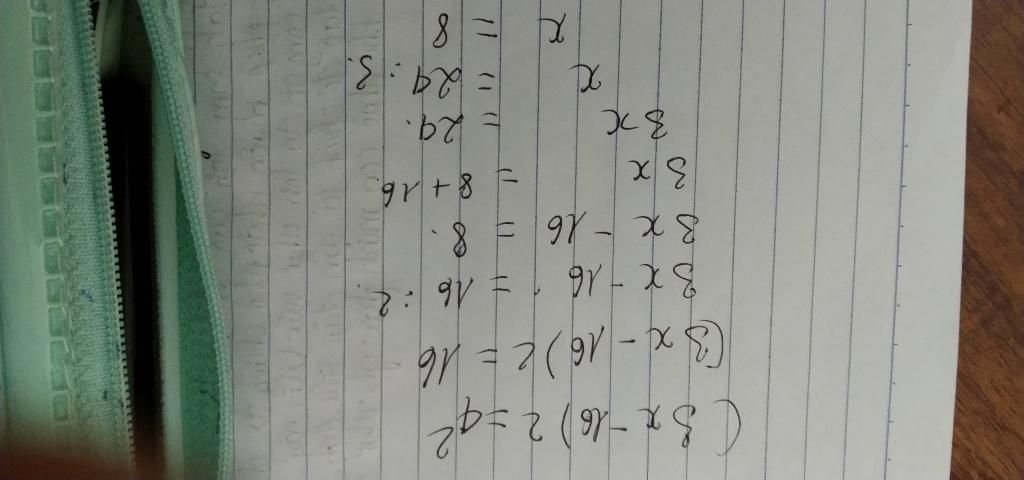 (3x - 16) 2 = 4²
(3x - 16) 2 = 16
3x - 16 = 16 : 2.
3x - 16 = 8.
3x = 8 + 16
3x = 24.
x = 24 : 3.
x = 8